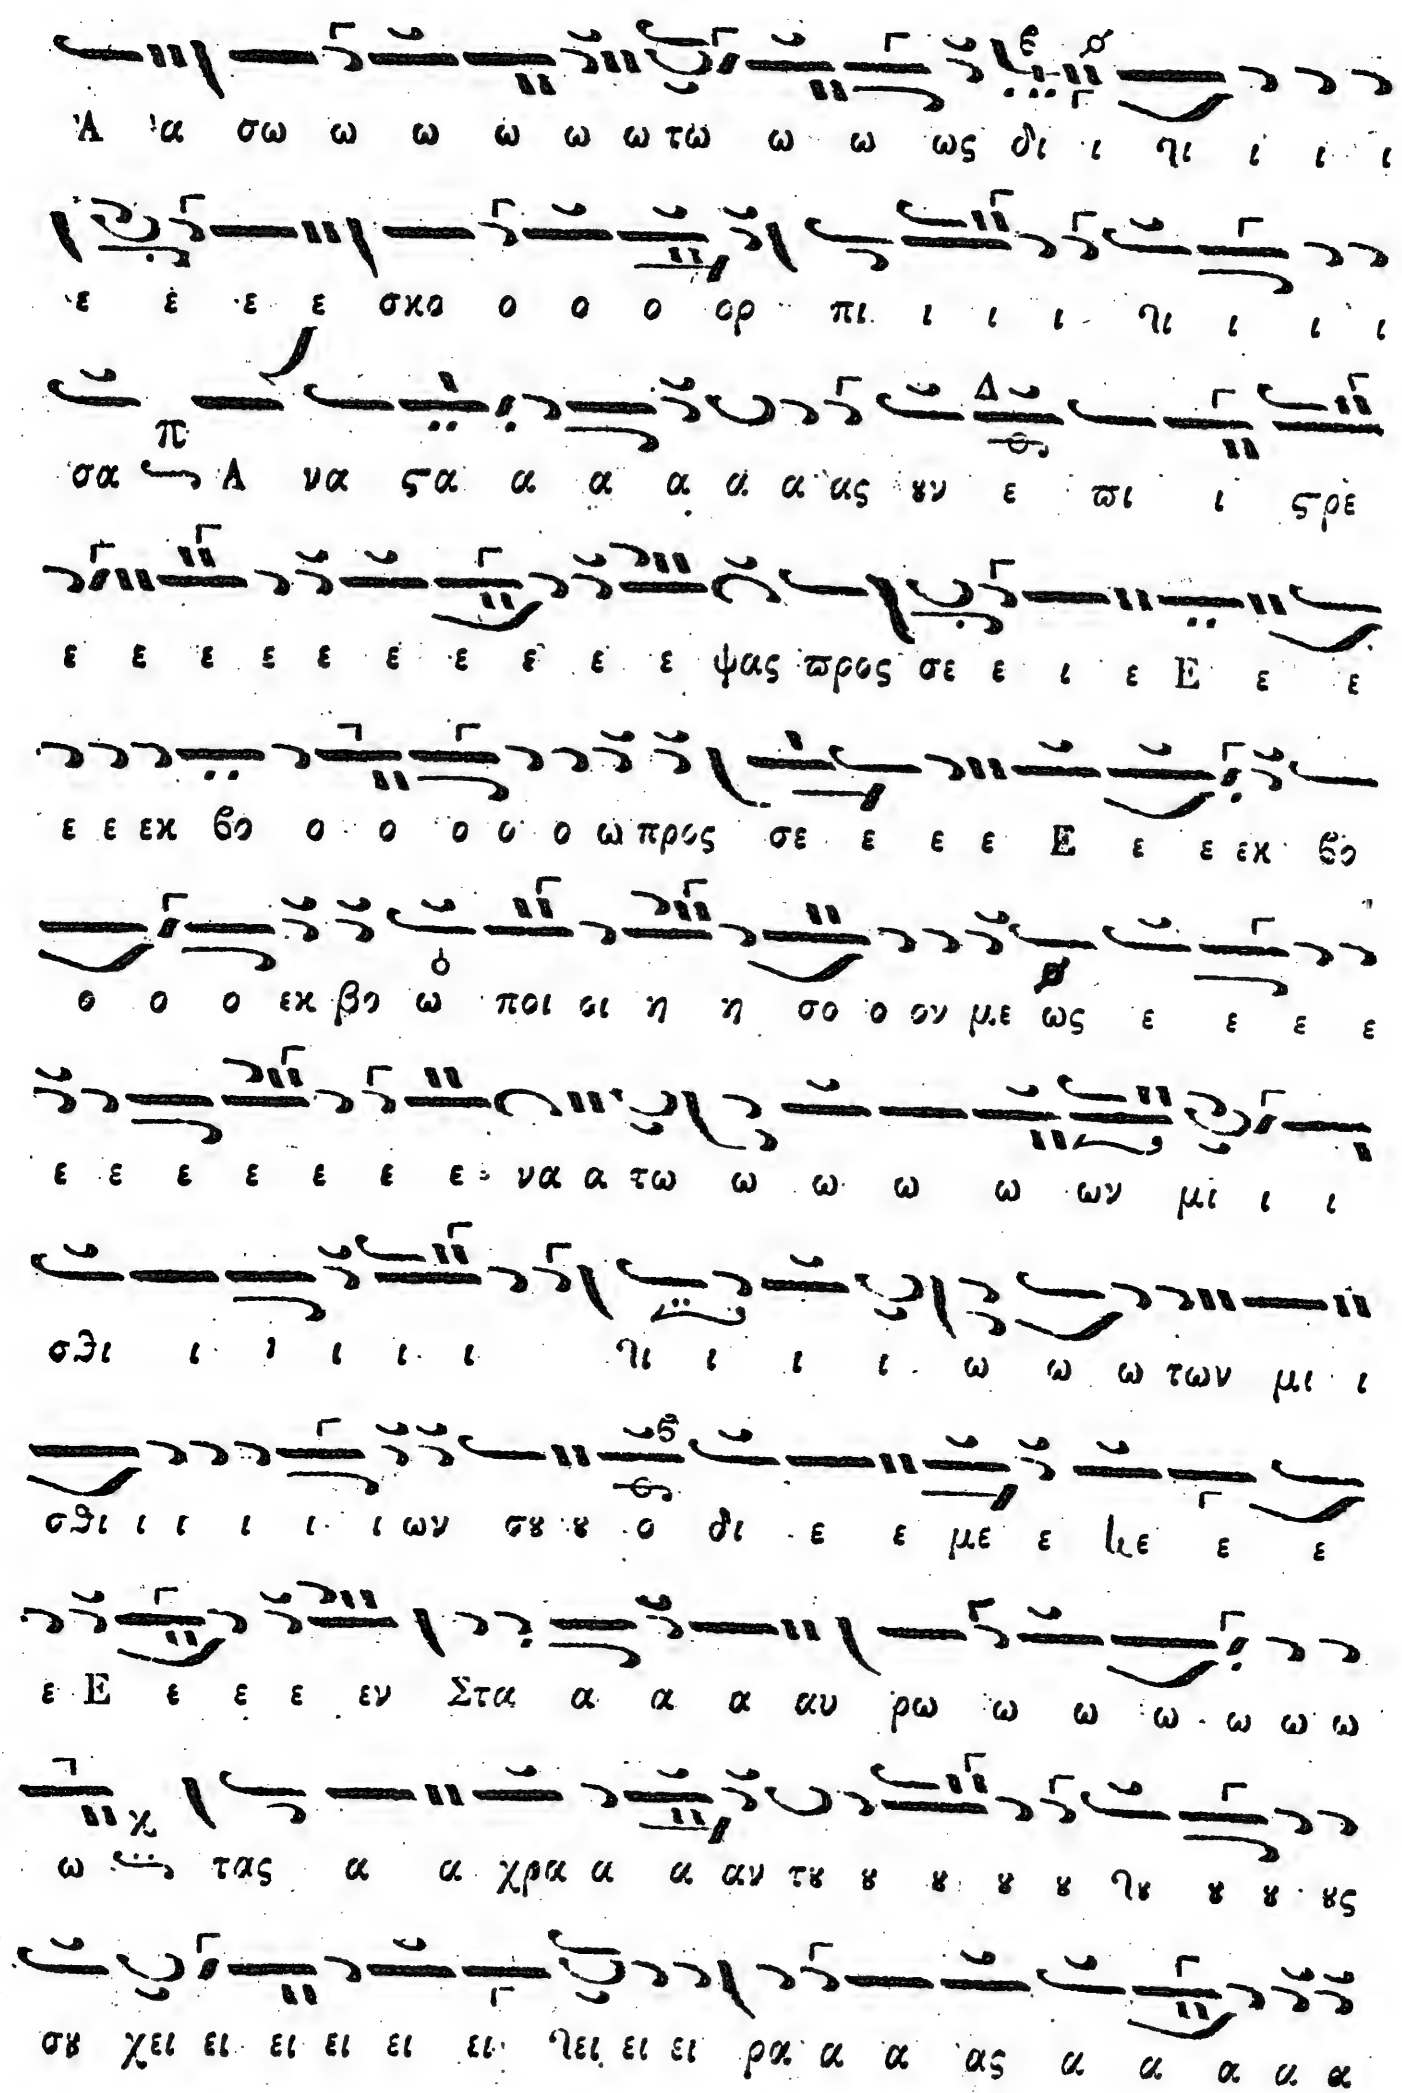 Ἀ ἀ α σω ω ω ω ω ω τω ω ω ως δι ι τι ι ι ι
ε ε ε ε σκο ο ο ο ορ πι ι ι ι τι ι ι ι
σα Α να ϛα α α α α α ας ȣν ε ϖι ι ϛρε
ε ε ε ε ε ε ε ε ε ε ψας ϖρος σε ε ι ε Ε ε ε
ε ε εκ βο ο ο ο ο ο ω προς σε ε ε ε Ε ε ε εκ βο
ο ο ο εκ βο ω ποι οι η η σο ο ον με ως ε ε ε ε
ε ε ε ε ε ε ε να α τω ω ω ω ω ων μι ι ι
σθι ι ι ι ι ι τι ι ι ι ω ω ω των μι ι
σθι ι ι ι ι ι ων σȣ ȣ ο δι ε ε με ε κε ε ε
ε Ε ε ε ε εν Στα α α α αυ ρω ω ω ω ω ω ω
ω τας α α χρα α α αν τȣ ȣ ȣ ȣ ȣ τȣ ȣ ȣ ȣς
σȣ χει ει ει ει ει ει τει ει ει ρα α α ας α α α α α